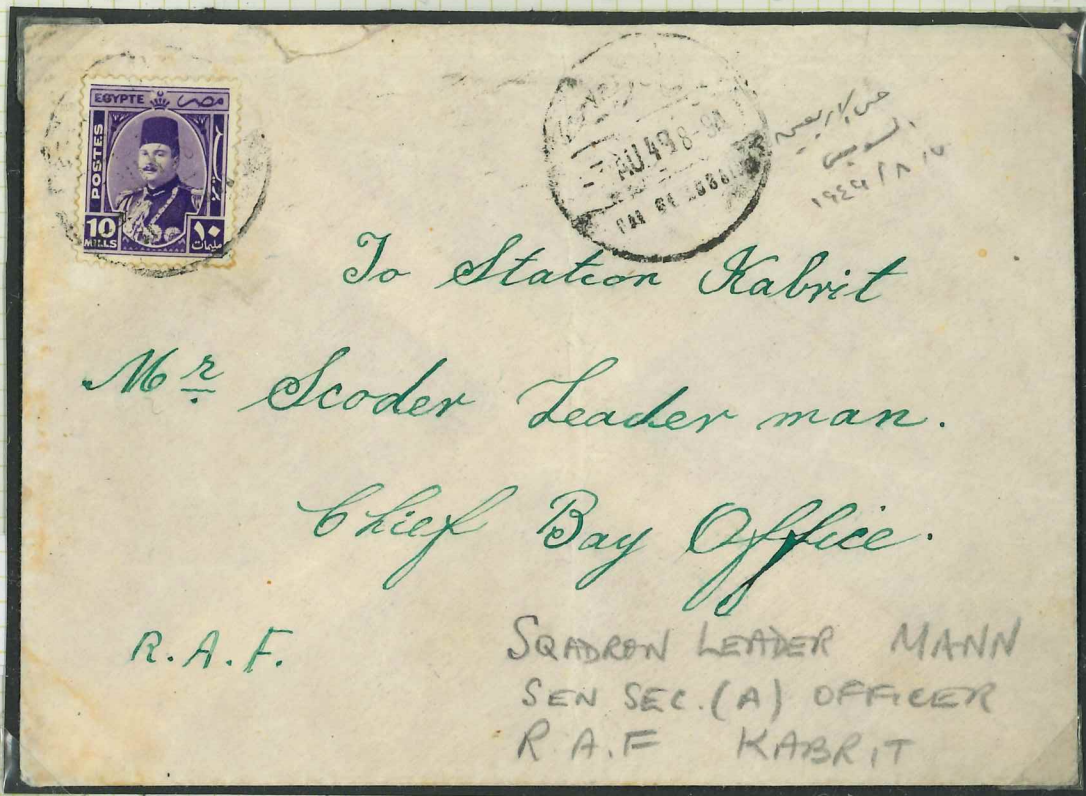 EGYPTE مصر
POSTES
10 ١٠
MILLS مليمات
AU.49 8-9A
السويس
To Station Kabrit
Mr Scoder Leader man.
Chief Bay Office.
R.A.F.
SQADRON LEADER MANN
SEN SEC. (A) OFFICER
R.A.F KABRIT